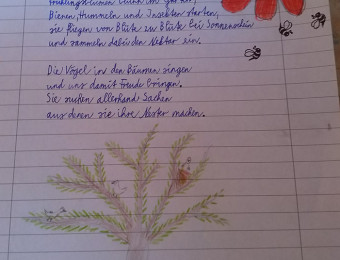 Frühlingsblumen blühn im Garten,
Bienen, Hummeln und Insekten starten,
sie fliegen von Blüte zu Blüte bei Sonnenschein
und sammeln dabei den Nektar ein.
Die Vögel in den Bäumen singen
und uns damit Freude bringen.
Sie suchen allerhand Sachen
aus denen sie ihre Nester machen.